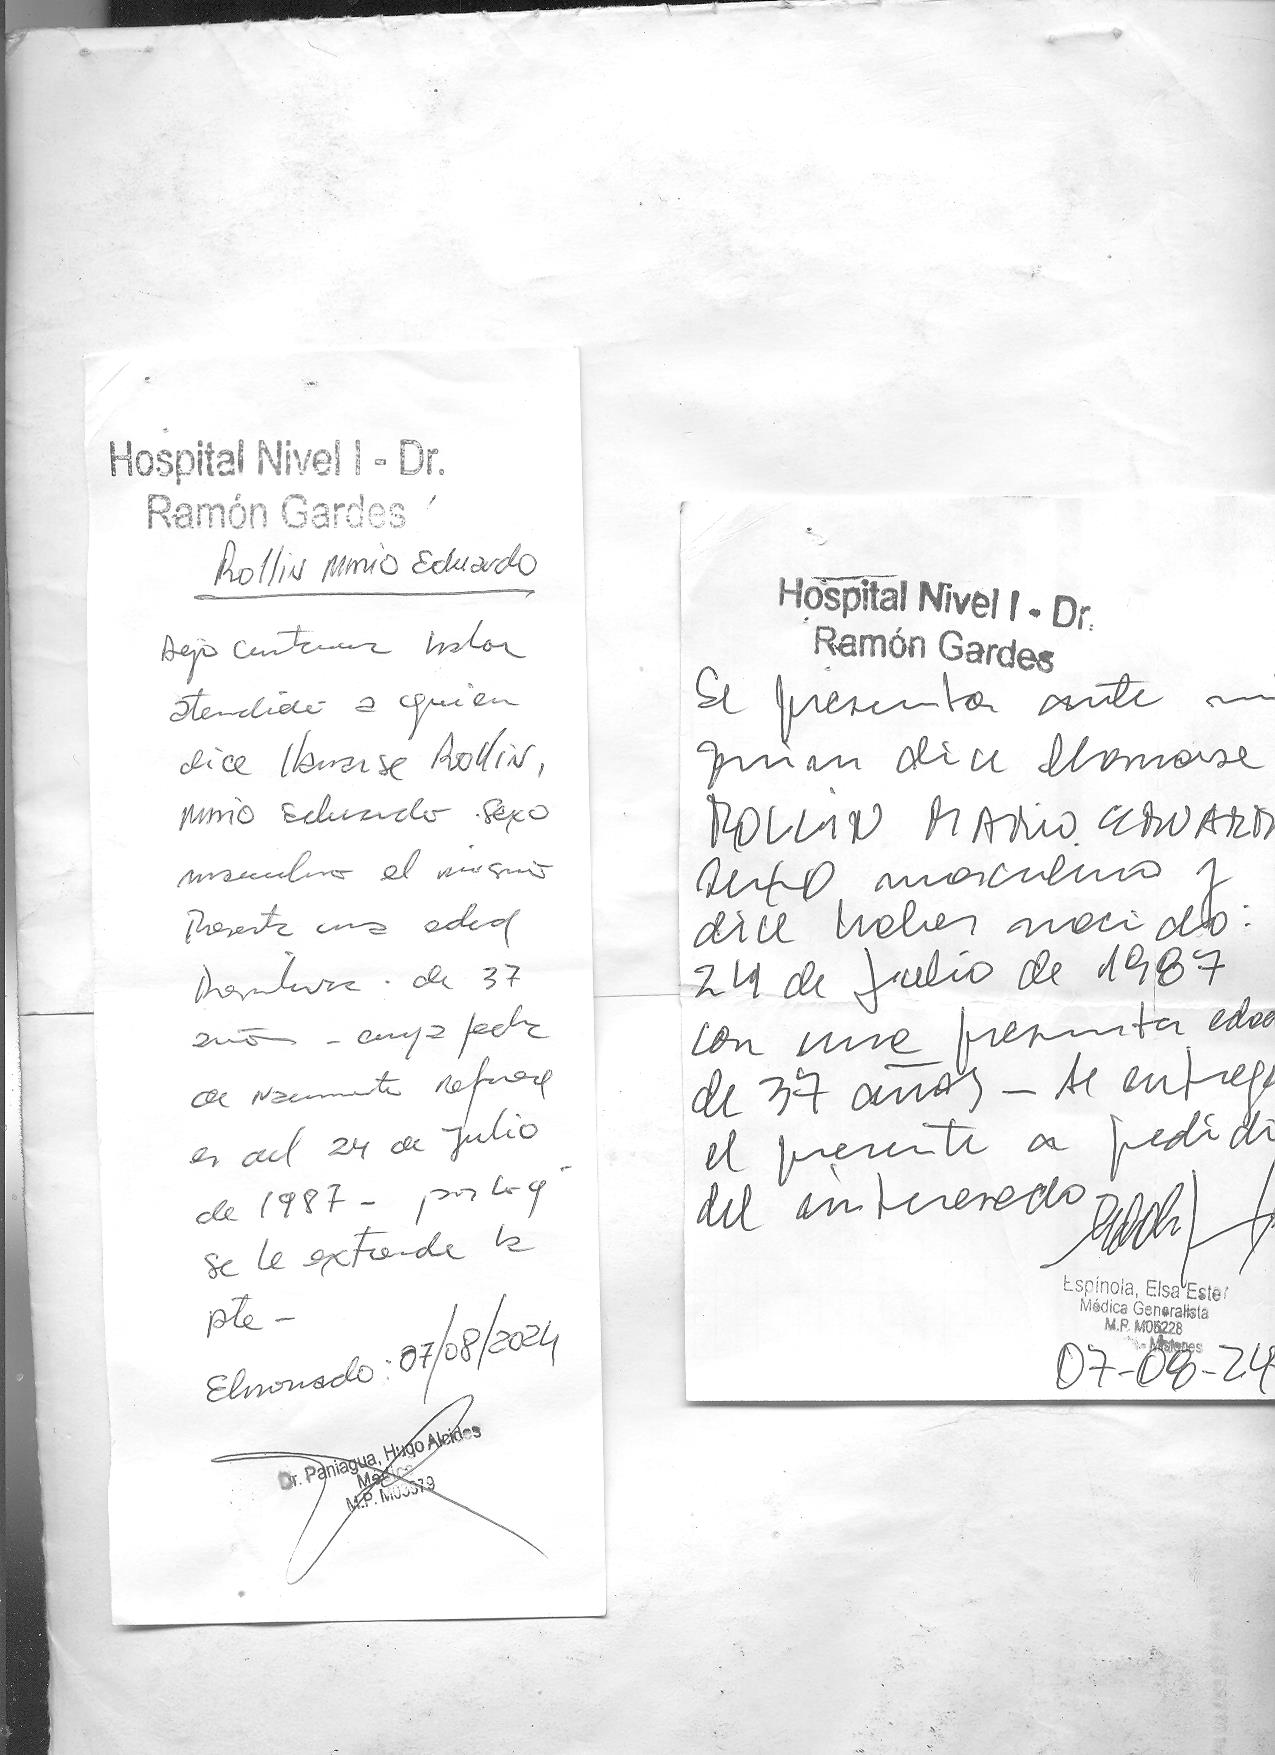 Hospital Nivel I - Dr.
Ramón Gardes
Rollin Mario Eduardo
Dejo constancia haber
atendido a quien
dice llamarse Rollin,
Mario Eduardo sexo
masculino el mismo
Presenta una edad
Presuntiva de 37
años - cuya fecha
de nacimiento refiere
es del 24 de Julio
de 1987 - por lo q'
se le extiende la
pte -
07/08/2024
Dr. Paniagua, Hugo Alcides
Médico
M.P.
Hospital Nivel I - Dr.
Ramón Gardes
Se presenta ante mi
quien dice llamarse
ROLLIN MARIO EDUARD
sexo masculino y
dice haber nacido:
24 de Julio de 1987
con una presunta edad
de 37 años - Se entrega
el presente a pedid
del interesado
Espínola, Elsa Ester
Médica Generalista
M.P. M05228
Misiones
07-08-24